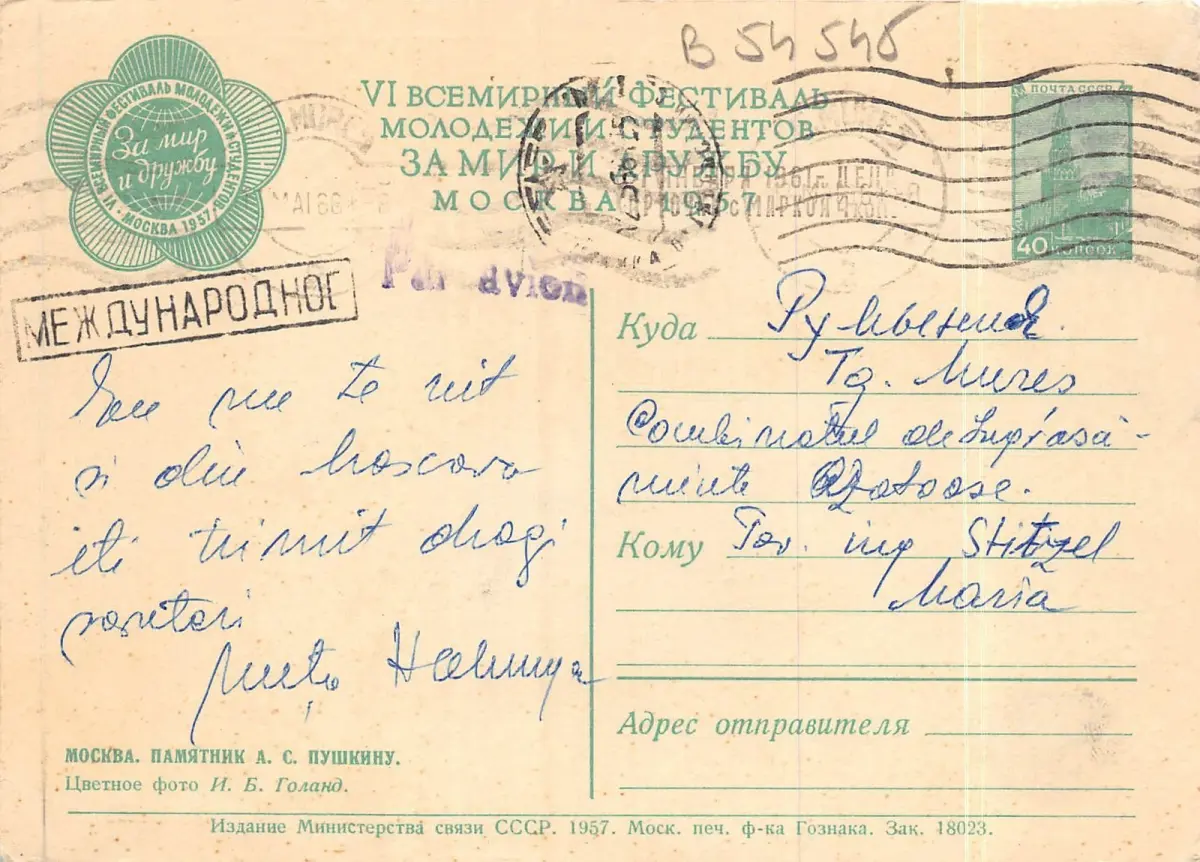 В 54 545
VI ВСЕМИРНЫЙ ФЕСТИВАЛЬ
МОЛОДЕЖИ И СТУДЕНТОВ
ЗА МИР И ДРУЖБУ
МОСКВА 1957
VI ВСЕМИРНЫЙ ФЕСТИВАЛЬ МОЛОДЕЖИ И СТУДЕНТОВ
За мир
и дружбу
МОСКВА 1957
ПОЧТА СССР
40 КОПЕЕК
МЕЖДУНАРОДНОЕ
Par avion
Eu nu te uit
si din Moscova
iti trimit dragi
Куда Румыния.
Tg. Mures
Combinatul de Ingrăsă-
minte Azotoase.
Кому Tov. ing Stitzel
Maria
Адрес отправителя
МОСКВА. ПАМЯТНИК А. С. ПУШКИНУ.
Цветное фото И. Б. Голанд.
Издание Министерства связи СССР. 1957. Моск. печ. ф-ка Гознака. Зак. 18023.